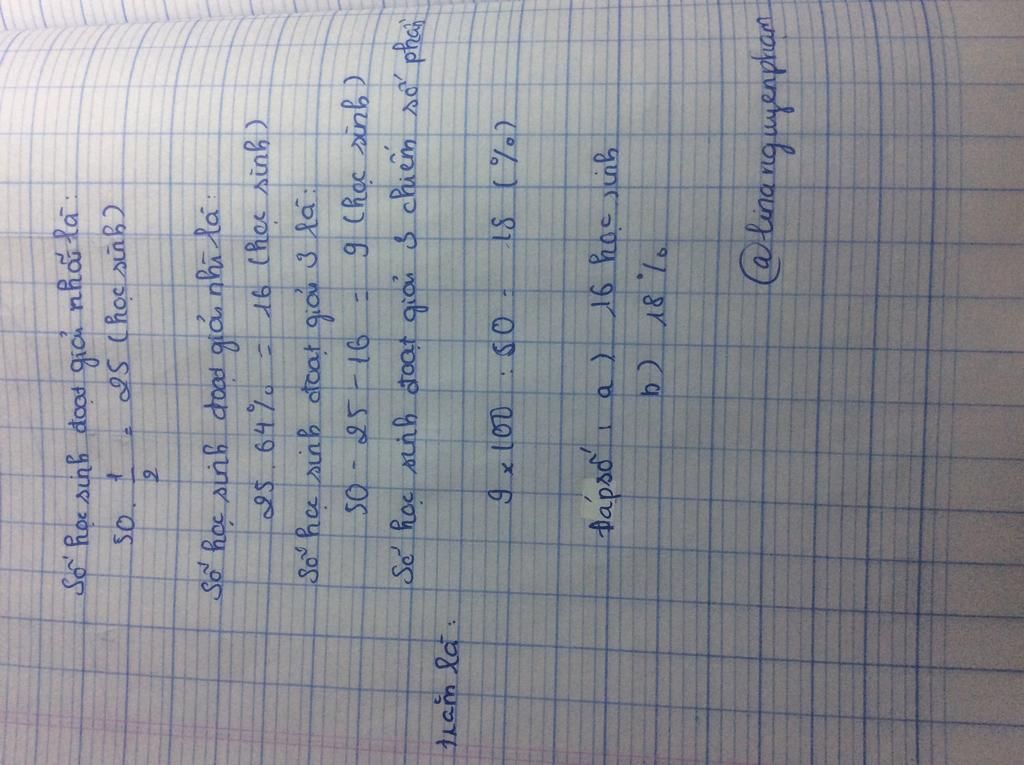 Số học sinh đoạt giải nhất là:
50 . 1/2 = 25 (học sinh)
Số học sinh đoạt giải nhì là:
25 . 64% = 16 (học sinh)
Số học sinh đoạt giải 3 là:
50 - 25 - 16 = 9 (học sinh)
Số học sinh đoạt giải 3 chiếm số phần
trăm là:
9 x 100 : 50 = 18 (%)
Đáp số : a) 16 học sinh
b) 18%
@linanguyenpham